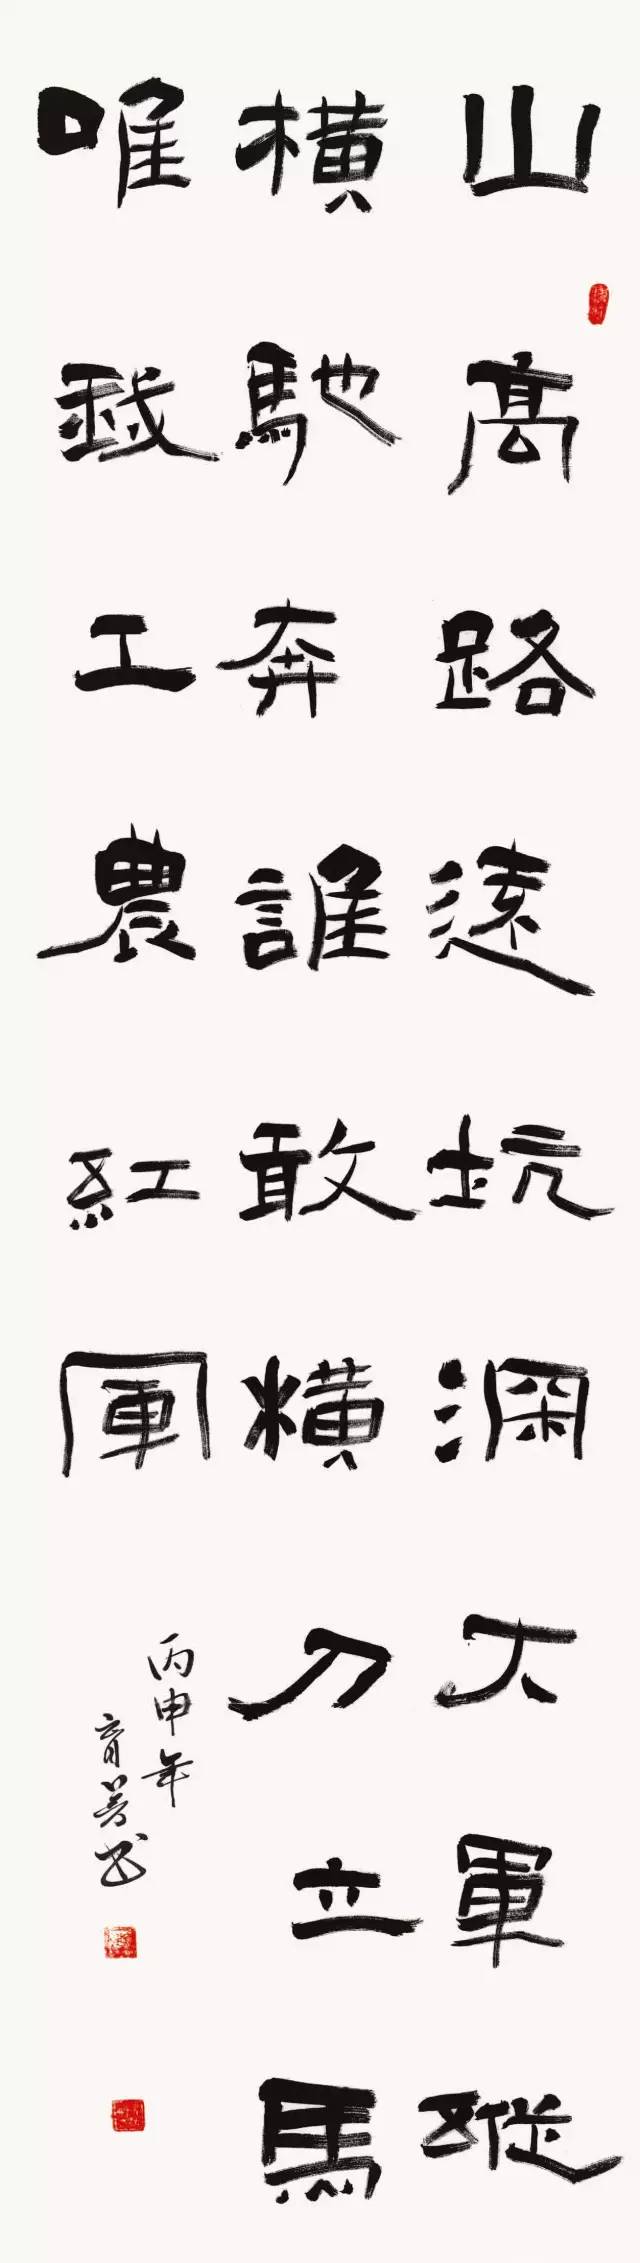 山高路遠坑深大軍縱
橫馳奔誰敢橫刀立馬
唯我工農紅軍
丙申年
育书